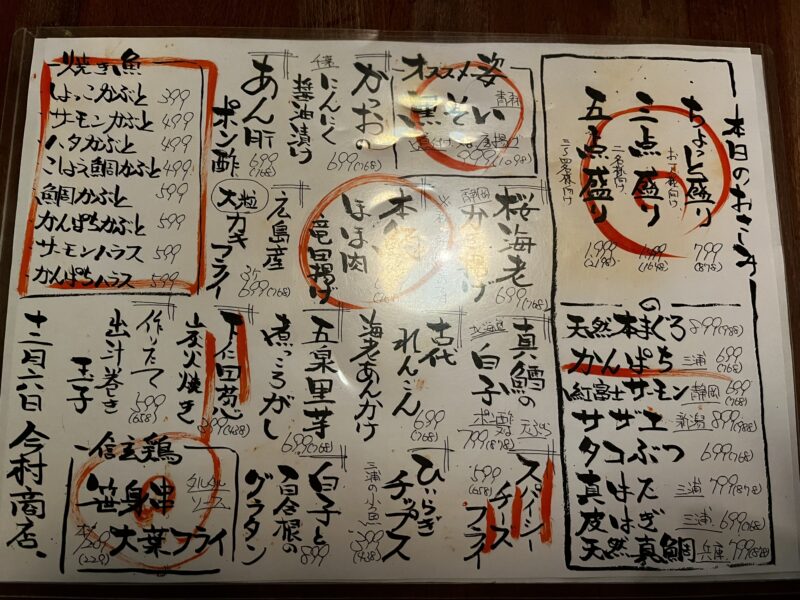 本日のおさしみ
ちょっと盛り
お一人様向け
799
(878)
三点盛り
二名様向け
(1648)
五点盛り
三〜四名様向け
1,999
(2198)
の
天然本まぐろ 899(988)
かんぱち 三浦 699(768)
紅富士サーモン 静岡 699(768)
サザエ 新潟 899(988)
タコぶつ 699(768)
真はた 三浦 799(878)
皮はぎ 三浦 699(768)
天然真鯛 兵庫 799(878)
オススメ姿
青森
黒そい
999(1098)
千葉
かつおの
にんにく
醤油漬け
699(768)
あん肝
ポン酢
699
(768)
静岡
桜海老
かき揚げ
699(768)
ほほ肉
竜田揚げ
広島産
大粒
カキフライ
3ケ
699(768)
焼き魚
しょっこかぶと 399
サーモンかぶと 499
ハタかぶと 499
こしょう鯛かぶと 499
鯛かぶと 599
かんぱちかぶと 599
サーモンハラス 599
かんぱちハラス 599
北海道
真鱈の
白子
ポン酢
天ぷら
799(878)
古代
れんこん
海老あんかけ
699
(768)
五泉里芋
煮っころがし
699(768)
下仁田葱
炭火焼き
399(438)
作りたて
出汁巻き
玉子
599
(658)
スパイシー
チーズ
フライ
599
(658)
ひいらぎ
チップス
三浦の小魚
399
(438)
白子と
百合根の
グラタン
899
信玄鶏
笹身串
大葉フライ
タルタル
ソース
209
(229)
十二月六日 今村商店、